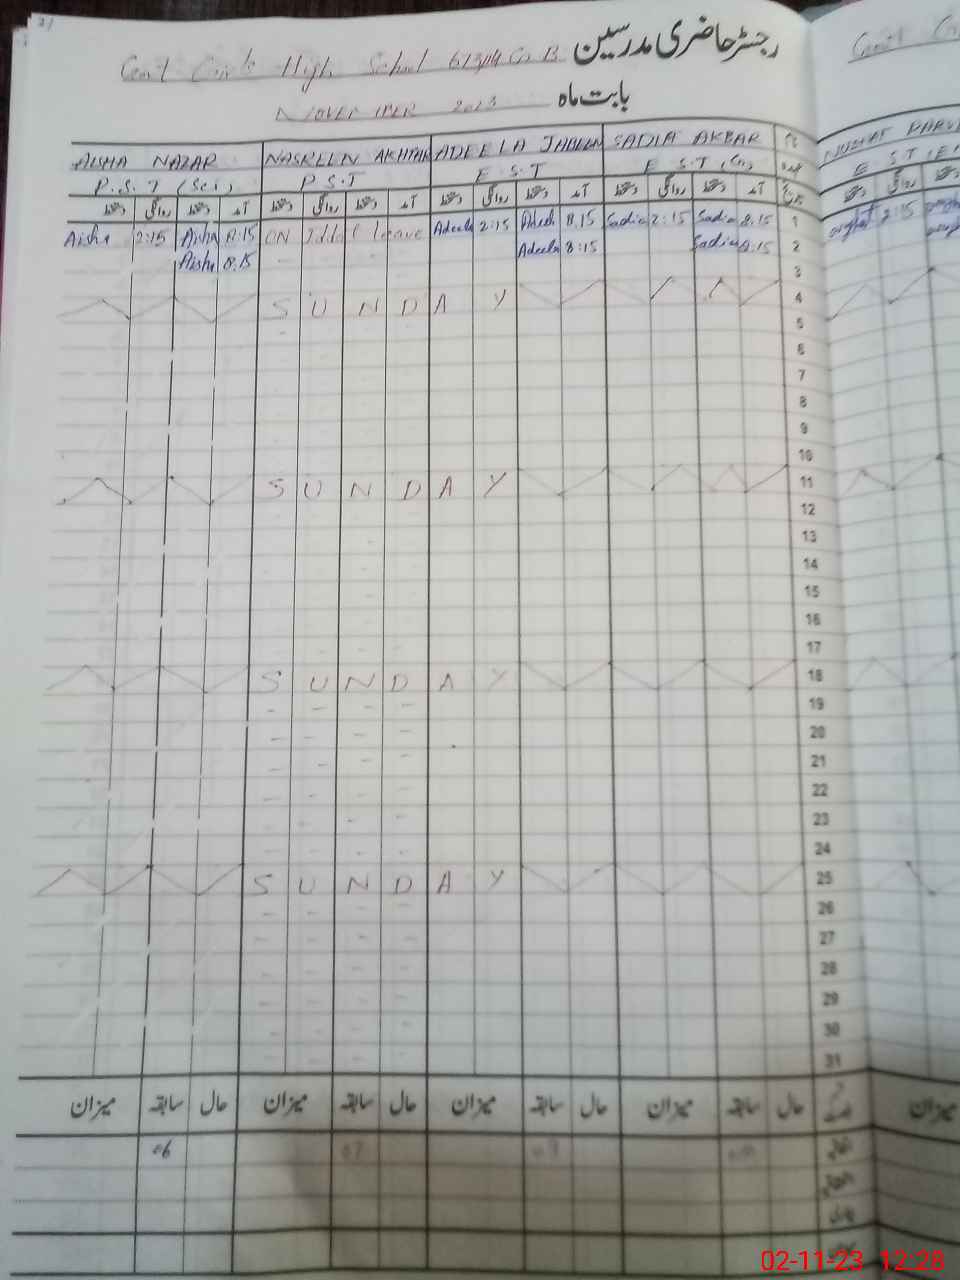 رجسٹر حاضری مدرسین
Govt Girls High School 613/14 G B
بابت ماہ NOVEMBER 2023
AISHA NAZAR NASREEN AKHTAR ADEELA JABEEN SADIA AKBAR
P.S.T (Sci) P.S.T E.S.T E.S.T (Gn)
دستخط روانگی دستخط آمد دستخط روانگی دستخط آمد دستخط روانگی دستخط آمد دستخط روانگی دستخط آمد تاریخ
Aisha 2:15 Aisha 8:15 ON Iddat leave Adeela 2:15 Adeela 8.15 Sadia 2:15 Sadia 8:15 1 2:15
Aisha 8:15 Adeela 8:15 Sadia 8:15 2
3
SUNDAY 4
5
6
7
8
9
10
SUNDAY 11
12
13
14
15
16
17
SUNDAY 18
19
20
21
22
23
24
SUNDAY 25
26
27
28
29
30
31
میزان سابقہ حال میزان سابقہ حال میزان سابقہ حال میزان سابقہ حال میزان
06 07 اتفاقیہ
02-11-23 12:28